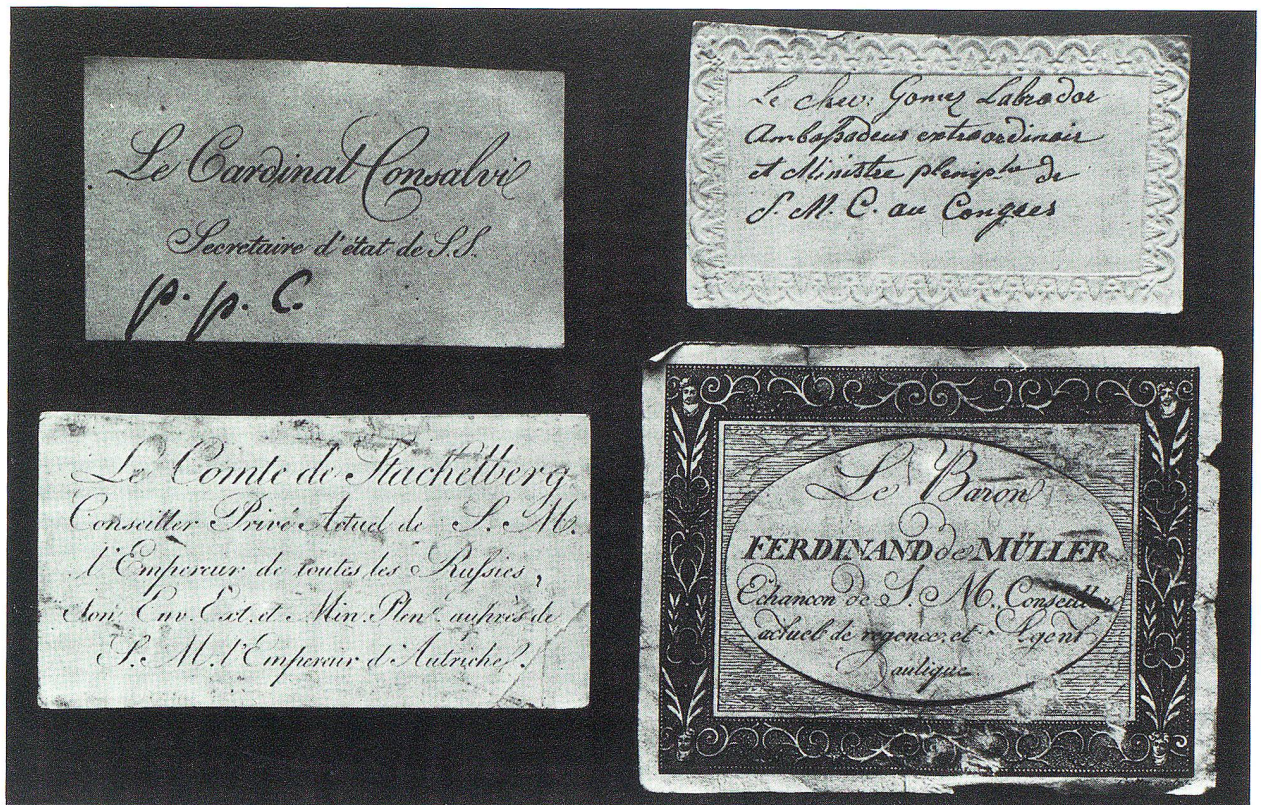 Le Cardinal Consalvi
Secretaire d'état de S.S.
p. p. C.
Le chev: Gomez Labrador
Ambassadeur extraordinair
et Ministre plenip.re de
S. M. C. au Congres
Le Comte de Stachelberg
Conseiller Privé Actuel de S. M.
l'Empereur de toutes les Russies,
Son Env. Ext. et Min. Plen. auprès de
S. M. l'Empereur d'Autriche.
Le Baron
FERDINAND de MÜLLER
Echancon de S. M. Conseiller
actuel de regence, et Agent
aulique